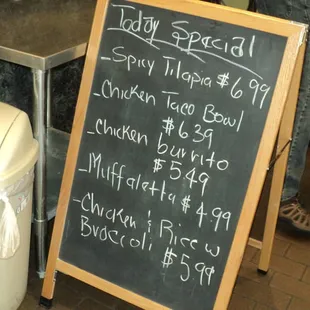 Today Special
-Spicy Tilapia $6.99
-Chicken Taco Bowl
$6.39
-Chicken burrito
$5.49
-Muffaletta $4.99
-Chicken & Rice w
Broccoli $5.99